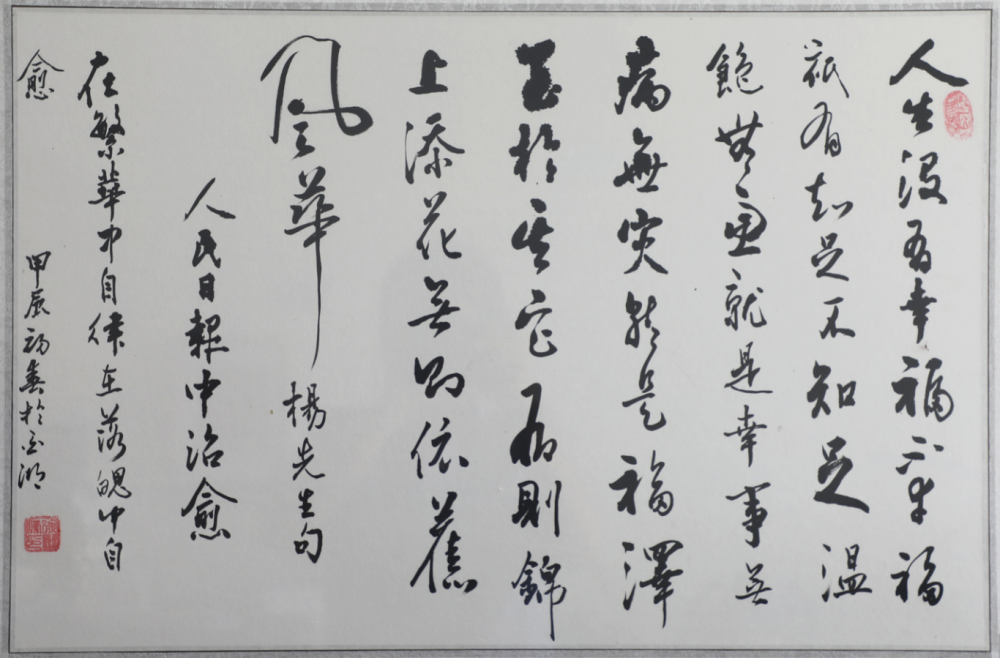 人生没有幸福不幸福
衹有知足不知足温
飽無慮就是幸事無
病無灾就是福澤
至於其它有則錦
上添花無則依舊
風華
楊先生句
人民日報中治愈
在繁華中自律在落魄中自
愈
甲辰初春於金湖